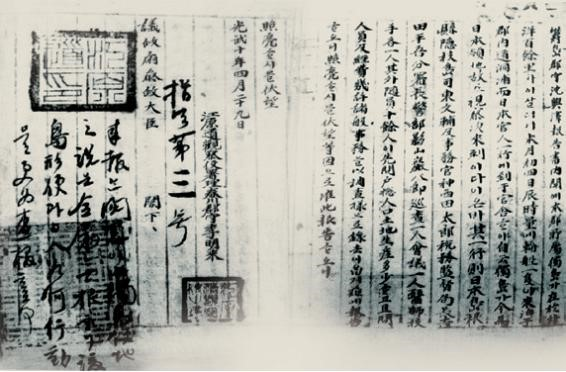 鬱島郡守沈興澤報告書內開에本郡所屬獨島가在於外
洋百餘里外이살더니本月初四日辰時量에輪船一隻이來泊于
郡內道洞浦而日本官人一行이到于官舍ᄒᆞ야自云獨島가今爲
日本領地故로視察次來到이다이온바其一行則日本島根
縣隱岐島司東文輔及事務官神西田太郞稅務監督局長吉
田平吾分署長警部影山巖八郞巡査一人會議員一人醫師技
手各一人其外隨員十餘人이先問戶摠人口土地生産多少ᄒᆞ고且問
人員及經費幾許諸般事務를以調査樣으로錄去이ᄋᆞᆸ기玆以報告
ᄒᆞ오니照亮ᄒᆞ시믈伏望等因으로准此報告ᄒᆞ오니
照亮ᄒᆞ시믈伏望
光武十年四月二十九日
江原道觀察使署理春川郡守李明來
議政府參政大臣 閣下
指令第三号
來報는閱悉이고獨島領地
之說은全屬無根ᄒᆞ니該
島形便과日人如何行動
을更爲査報ᄒᆞᆯ事